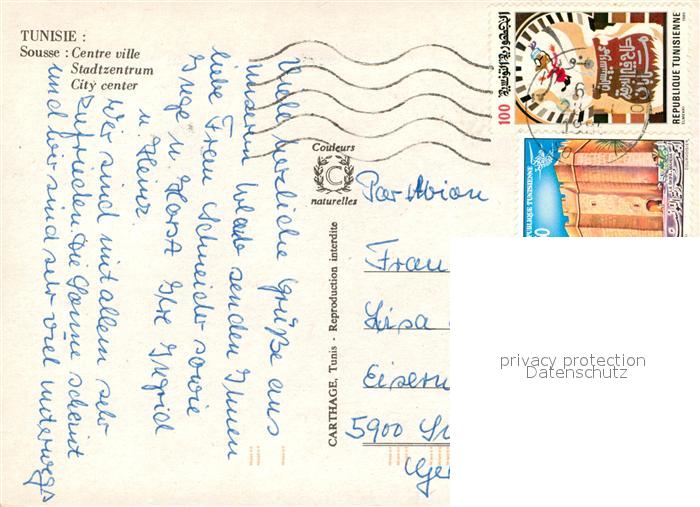 TUNISIE :
Sousse : Centre ville
Stadtzentrum
City center
Viele herzliche Grüße aus
unserem Urlaub senden Ihnen
liebe Frau Schneider sowie
Inge u. Horst Ihre Ingrid
u. Heinz.
Wir sind mit allem sehr
zufrieden. Die Sonne scheint
und wir sind sehr viel unterwegs
Couleurs
C
naturelles
CARTHAGE, Tunis - Reproduction interdite
Par Avion
Frau
Lisa
Eisern
5900
100
الجمهورية التونسية
REPUBLIQUE TUNISIENNE
REPUBLIQUE TUNISIENNE
privacy protection
Datenschutz